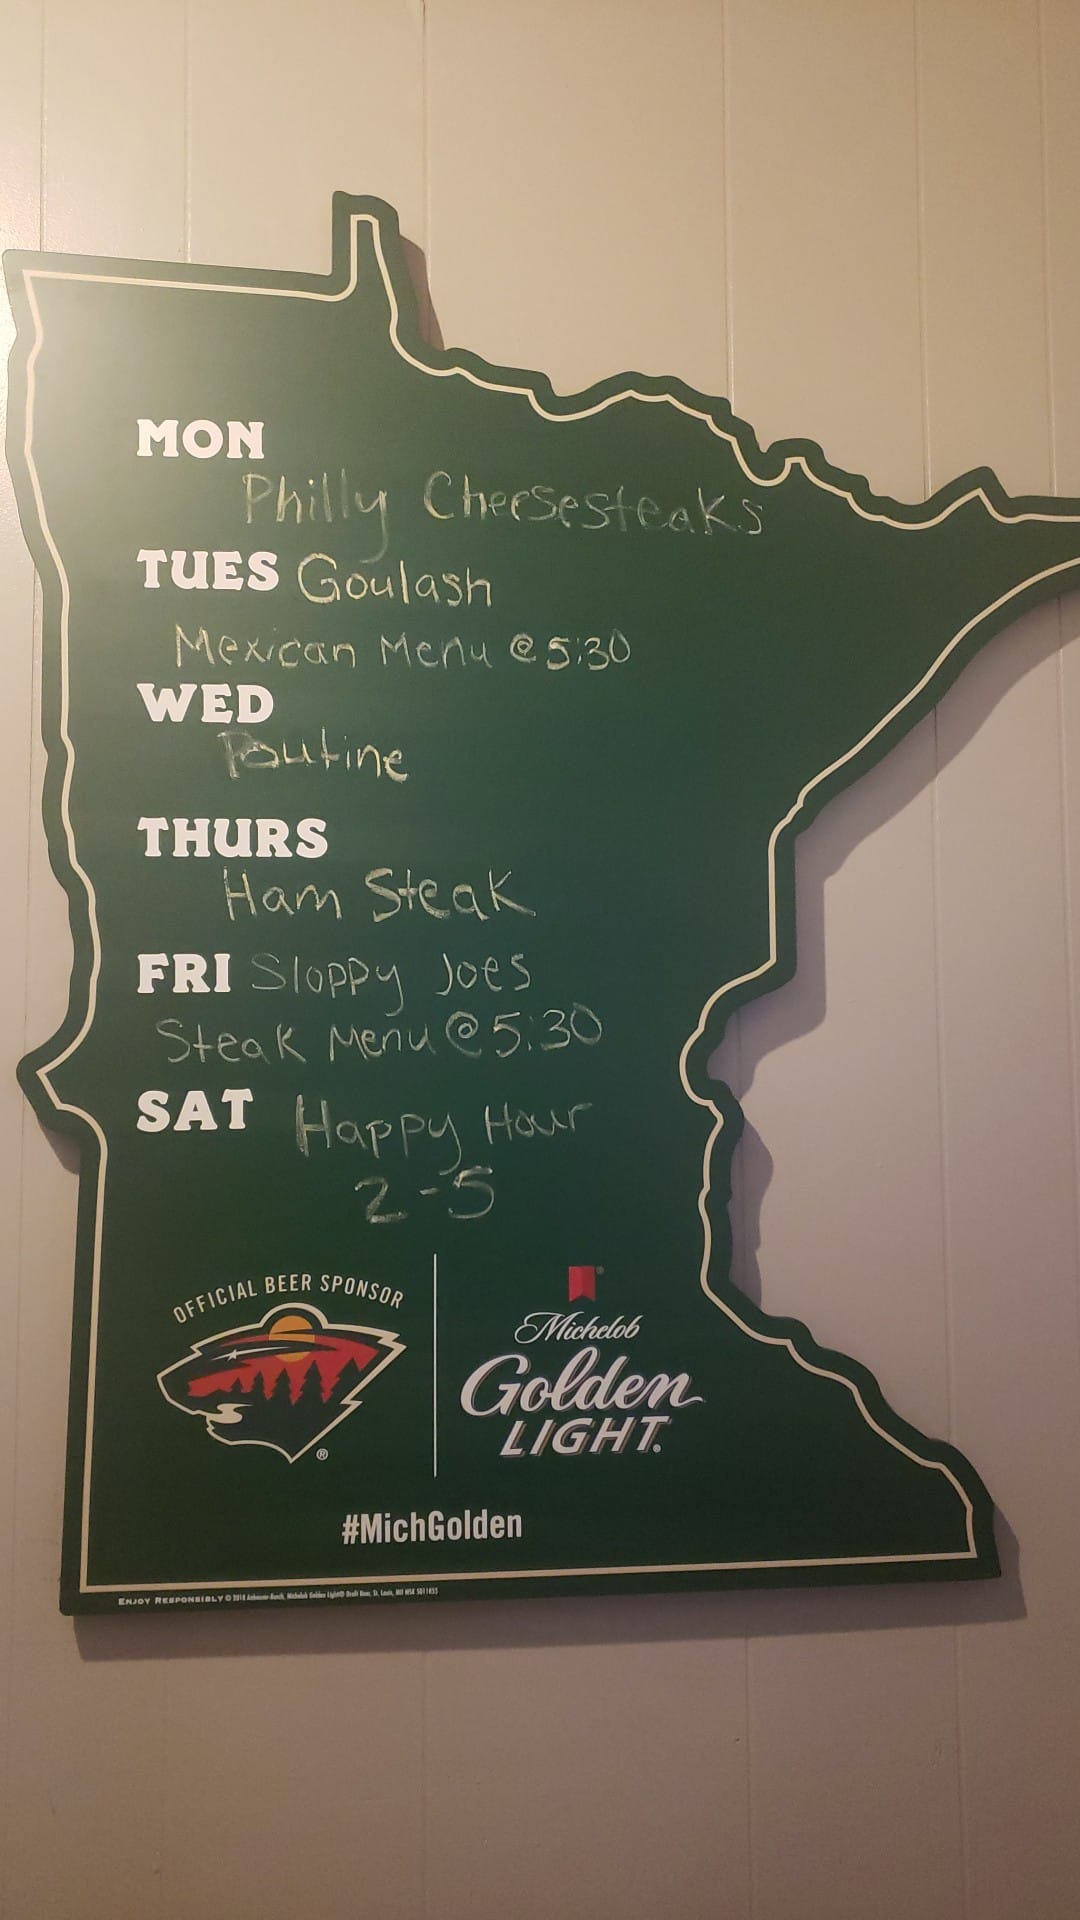 MON
Philly Cheesesteaks
TUES Goulash
Mexican Menu @ 5:30
WED
Poutine
THURS
Ham Steak
FRI Sloppy Joes
Steak Menu @ 5:30
SAT Happy Hour
2-5
OFFICIAL BEER SPONSOR
®
Michelob
Golden
LIGHT®
#MichGolden
ENJOY RESPONSIBLY © 2018 Anheuser-Busch, Michelob Golden Light® Draft Beer, St. Louis, MO